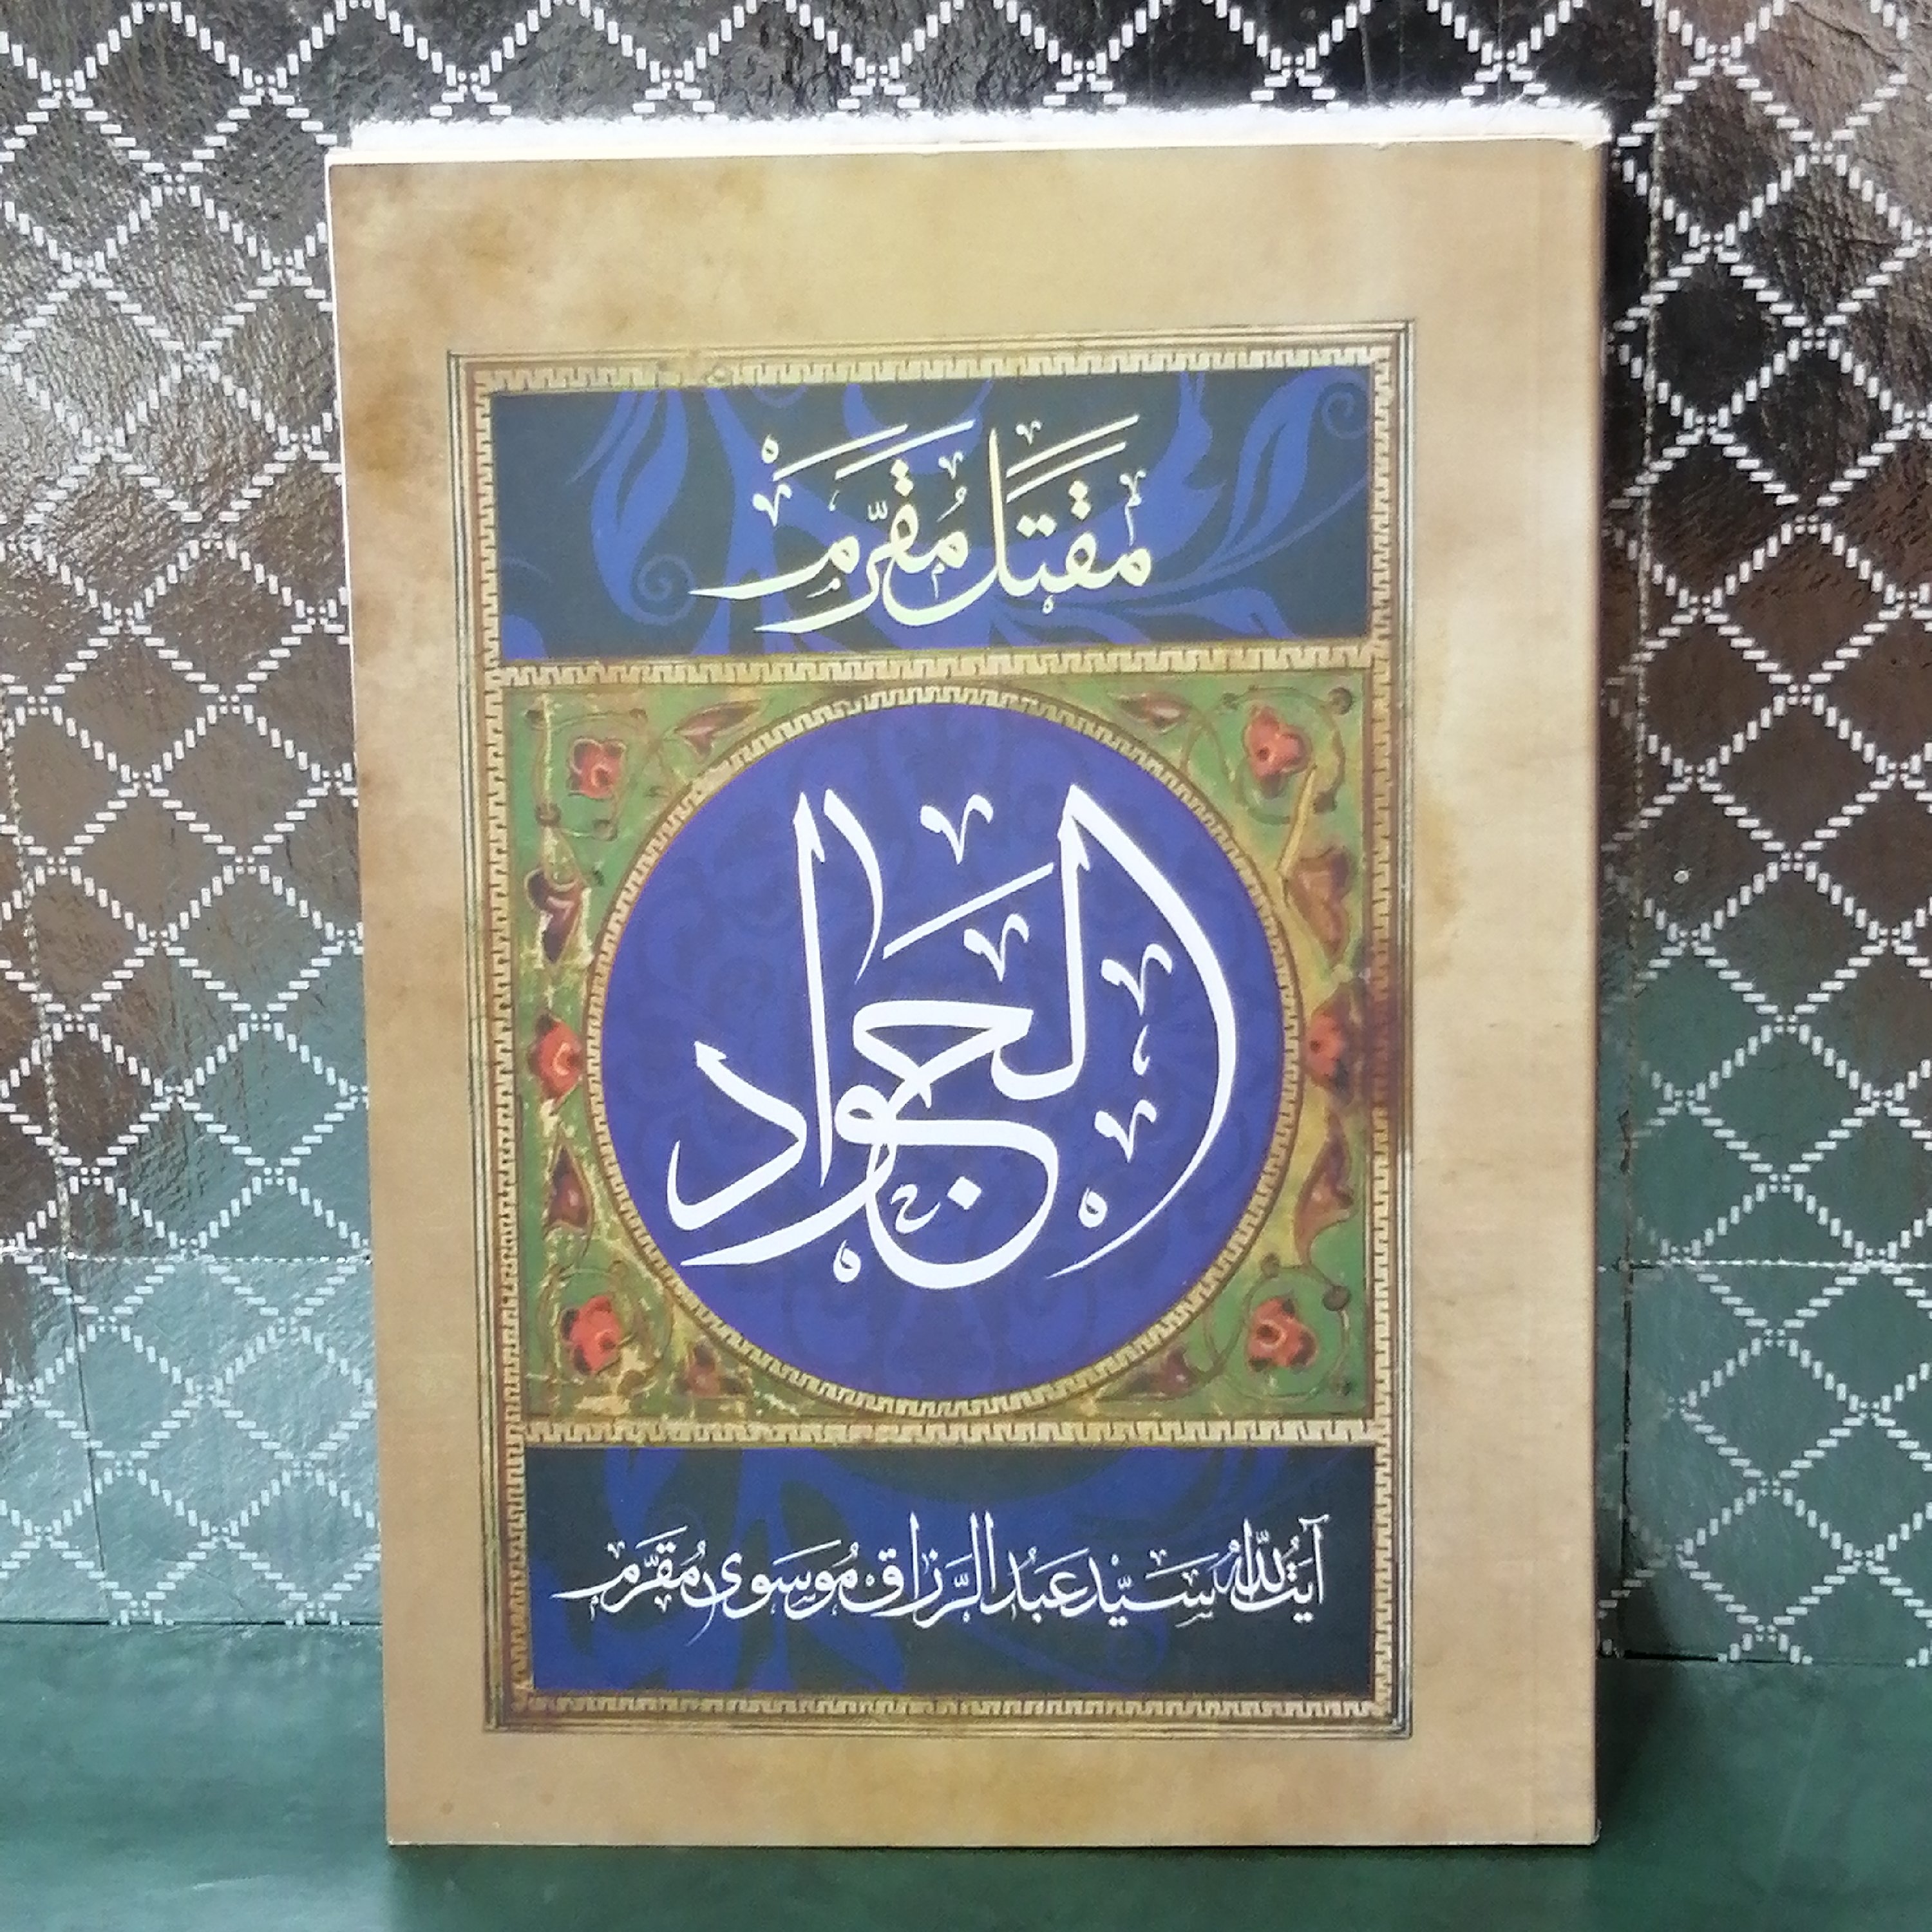 مقتل مُقرّم
الجواد
آیت‌اللّه سَیّد عَبدالرَزاق مُوسَوی مُقَرَّم